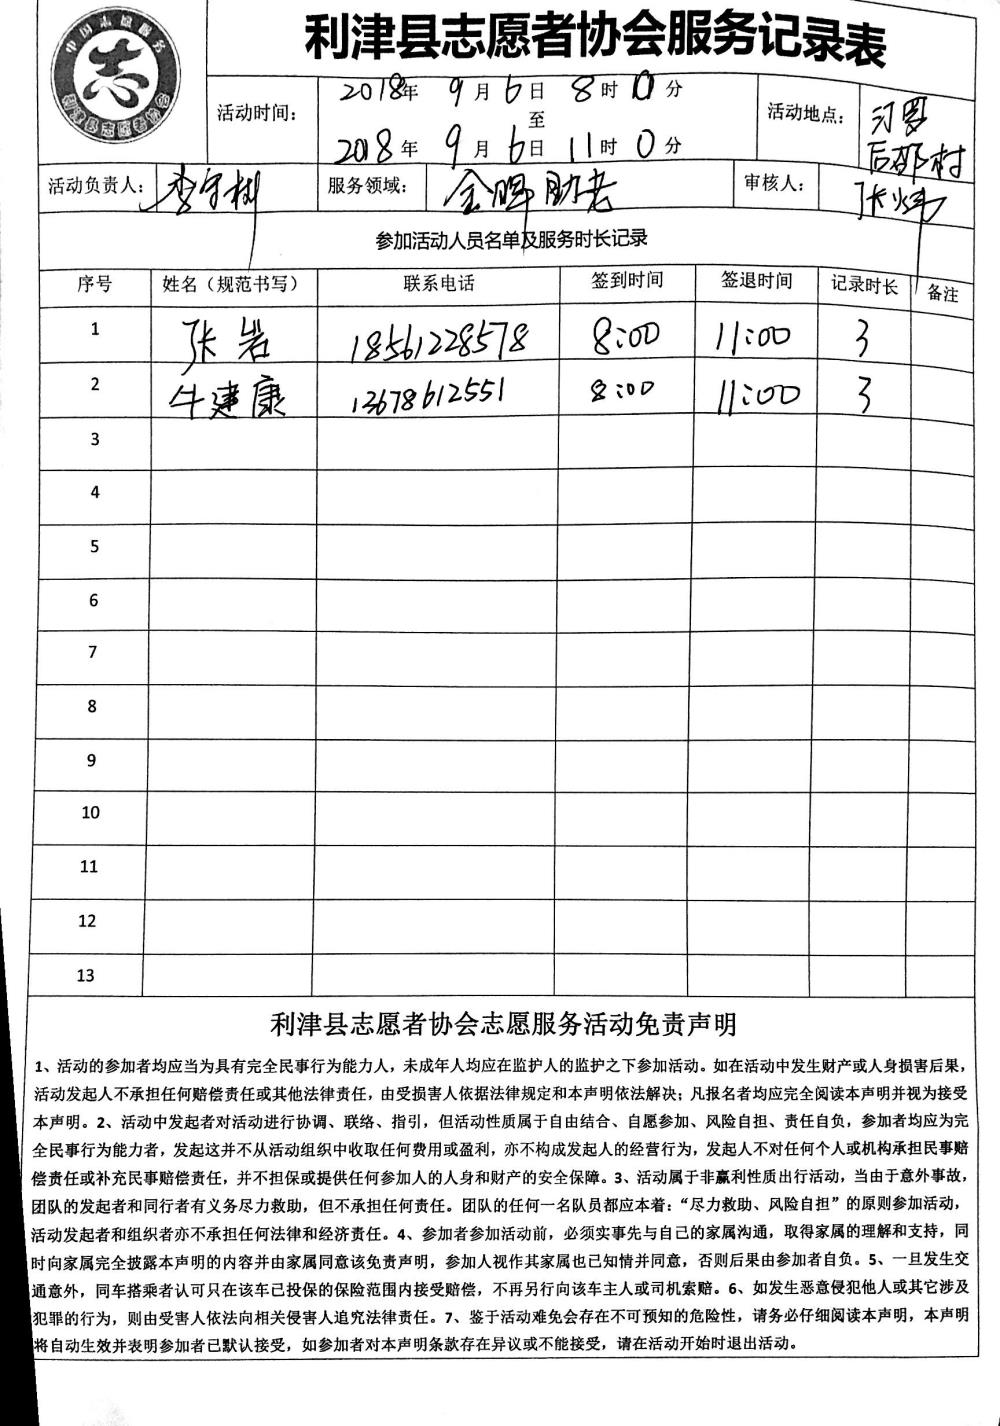 利津县志愿者协会服务记录表
中国志愿服务
志
利津县志愿者协会
活动时间：
2018年 9月6日 8时0分
至
2018年 9月6日 11时0分
活动地点：
汀罗
后邵村
活动负责人：
李守彬
服务领域：
金晖助老
审核人：
张炜
参加活动人员名单及服务时长记录
序号 姓名（规范书写） 联系电话 签到时间 签退时间 记录时长 备注
1 张岩 18561228578 8:00 11:00 3
2 牛建康 13678612551 8:00 11:00 3
3
4
5
6
7
8
9
10
11
12
13
利津县志愿者协会志愿服务活动免责声明
1、活动的参加者均应当为具有完全民事行为能力人，未成年人均应在监护人的监护之下参加活动。如在活动中发生财产或人身损害后果，
活动发起人不承担任何赔偿责任或其他法律责任，由受损害人依据法律规定和本声明依法解决；凡报名者均应完全阅读本声明并视为接受
本声明。2、活动中发起者对活动进行协调、联络、指引，但活动性质属于自由结合、自愿参加、风险自担、责任自负，参加者均应为完
全民事行为能力者，发起这并不从活动组织中收取任何费用或盈利，亦不构成发起人的经营行为，发起人不对任何个人或机构承担民事赔
偿责任或补充民事赔偿责任，并不担保或提供任何参加人的人身和财产的安全保障。3、活动属于非赢利性质出行活动，当由于意外事故，
团队的发起者和同行者有义务尽力救助，但不承担任何责任。团队的任何一名队员都应本着：“尽力救助、风险自担”的原则参加活动，
活动发起者和组织者亦不承担任何法律和经济责任。4、参加者参加活动前，必须实事先与自己的家属沟通，取得家属的理解和支持，同
时向家属完全披露本声明的内容并由家属同意该免责声明，参加人视作其家属也已知情并同意，否则后果由参加者自负。5、一旦发生交
通意外，同车搭乘者认可只在该车已投保的保险范围内接受赔偿，不再另行向该车主人或司机索赔。6、如发生恶意侵犯他人或其它涉及
犯罪的行为，则由受害人依法向相关侵害人追究法律责任。7、鉴于活动难免会存在不可预知的危险性，请务必仔细阅读本声明，本声明
将自动生效并表明参加者已默认接受，如参加者对本声明条款存在异议或不能接受，请在活动开始时退出活动。